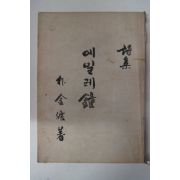 詩集
에밀레鐘
朴金浚著